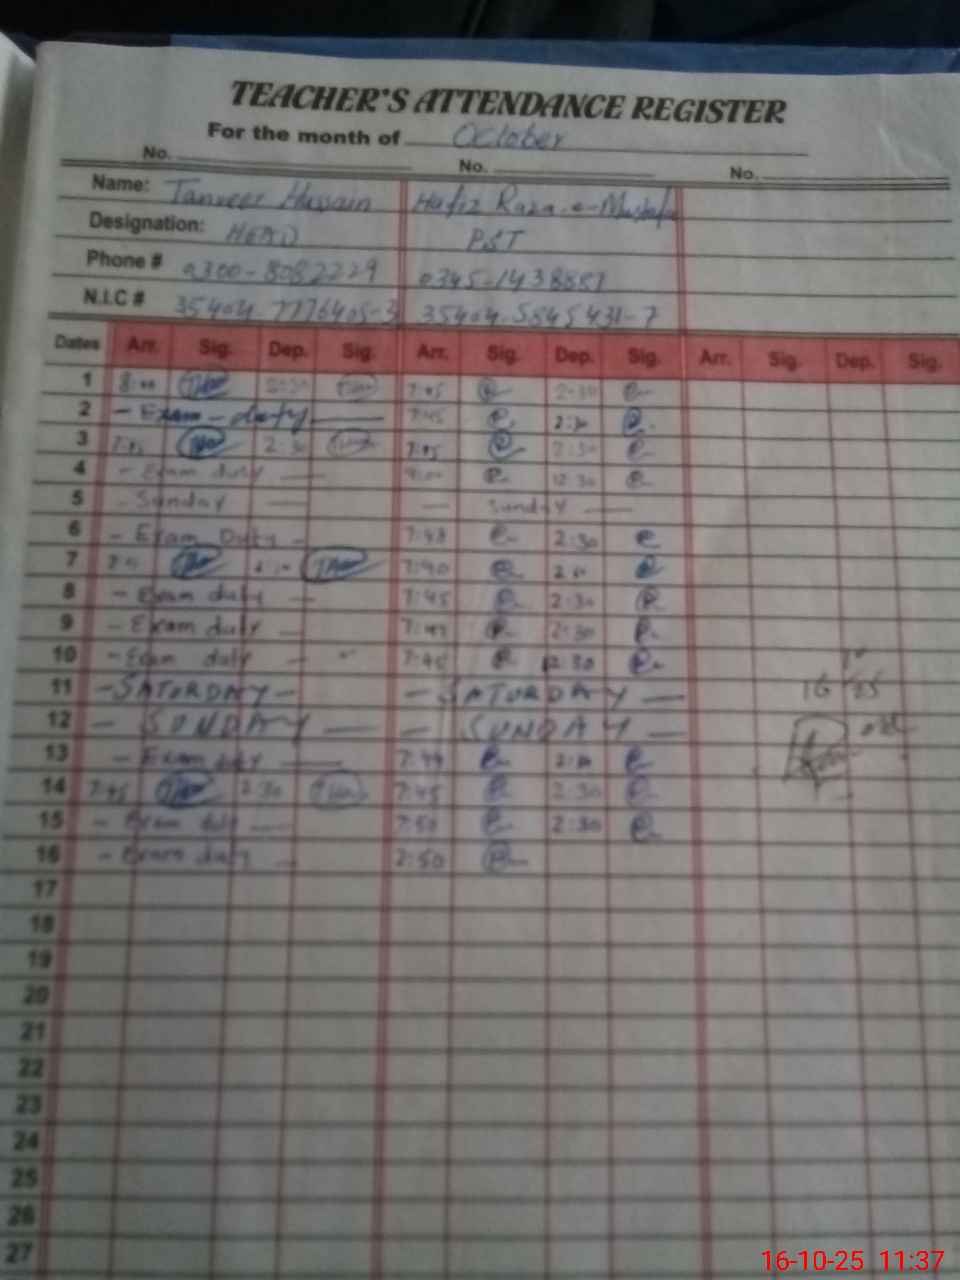 TEACHER'S ATTENDANCE REGISTER
For the month of October
No. No. No.
Name: Tanveer Hussain Hafiz Raza-e-Mustafa
Designation: HEAD PST
Phone # 0300-8082229 0345-1438881
N.I.C # 35404-7776405-3 35404-5845431-7
Dates Arr. Sig. Dep. Sig. Arr. Sig. Dep. Sig. Arr. Sig. Dep. Sig.
1 8:00 2:30 7:45 2:30
2 - Exam - duty 7:45 2:30
3 7:45 2:30 7:45 2:30
4 - Exam duty 12:30
5 - Sunday - Sunday
6 - Exam Duty - 7:48 2:30
7 7:40
8 - Exam duty - 7:45 2:30
9 - Exam duty - 2:30
10 - Exam duty - 7:45 12:30
11 - SATURDAY - - SATURDAY -
12 - SUNDAY - - SUNDAY -
13 - Exam duty 7:49
14 7:45 2:30 7:45 2:30
15 - Exam duty 7:50 2:30
16 - Exam duty - 7:50
17
18
19
20
21
22
23
24
25
26
27
16-10-25 11:37